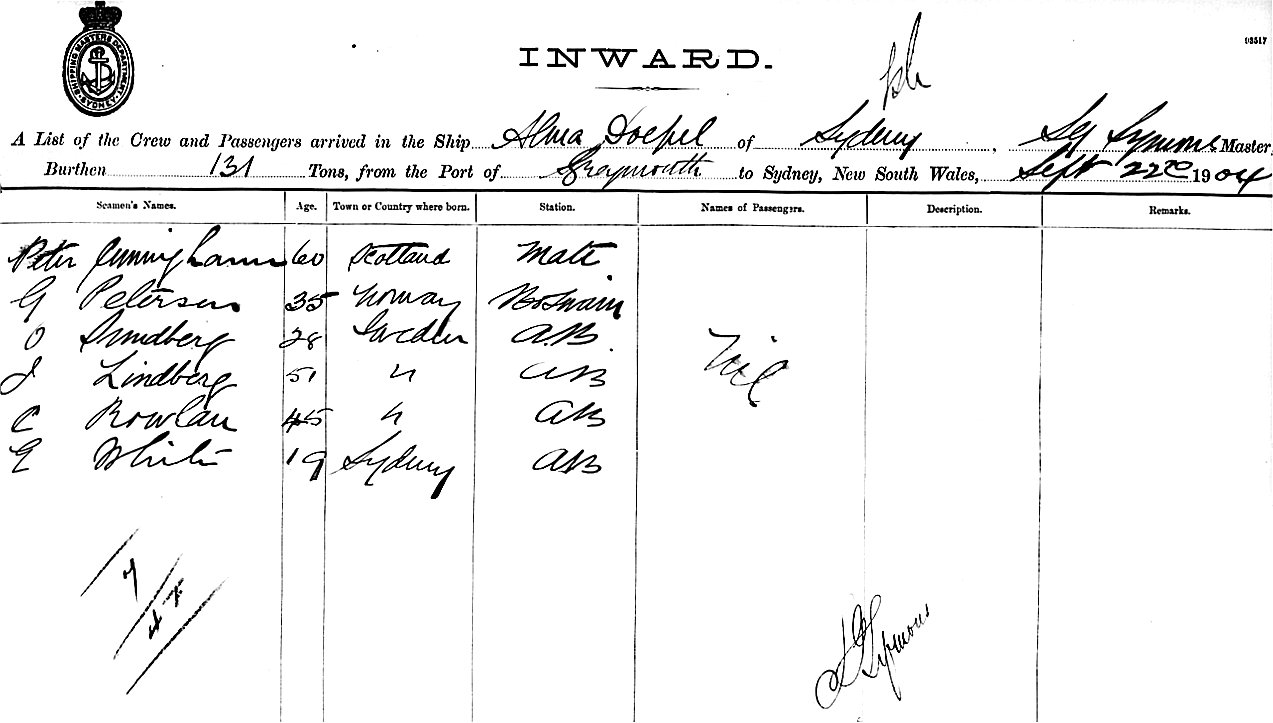 SHIPPING MASTERS DEPARTMENT SYDNEY
03517
INWARD.
A List of the Crew and Passengers arrived in the Ship Alma Doepel of Sydney, Symons Master,
Burthen 131 Tons, from the Port of Greymouth to Sydney, New South Wales, Sept 22 1904
Seamen's Names. Age. Town or Country where born. Station. Names of Passengers. Description. Remarks.
Peter Cunningham 60 Scotland Mate
G Petersen 35 Norway Boswain
O Sundberg 28 Sweden A.B.
J Lindberg 51 " AB
C Rowlan 45 " AB
E White 19 Sydney AB
Nil
Symons